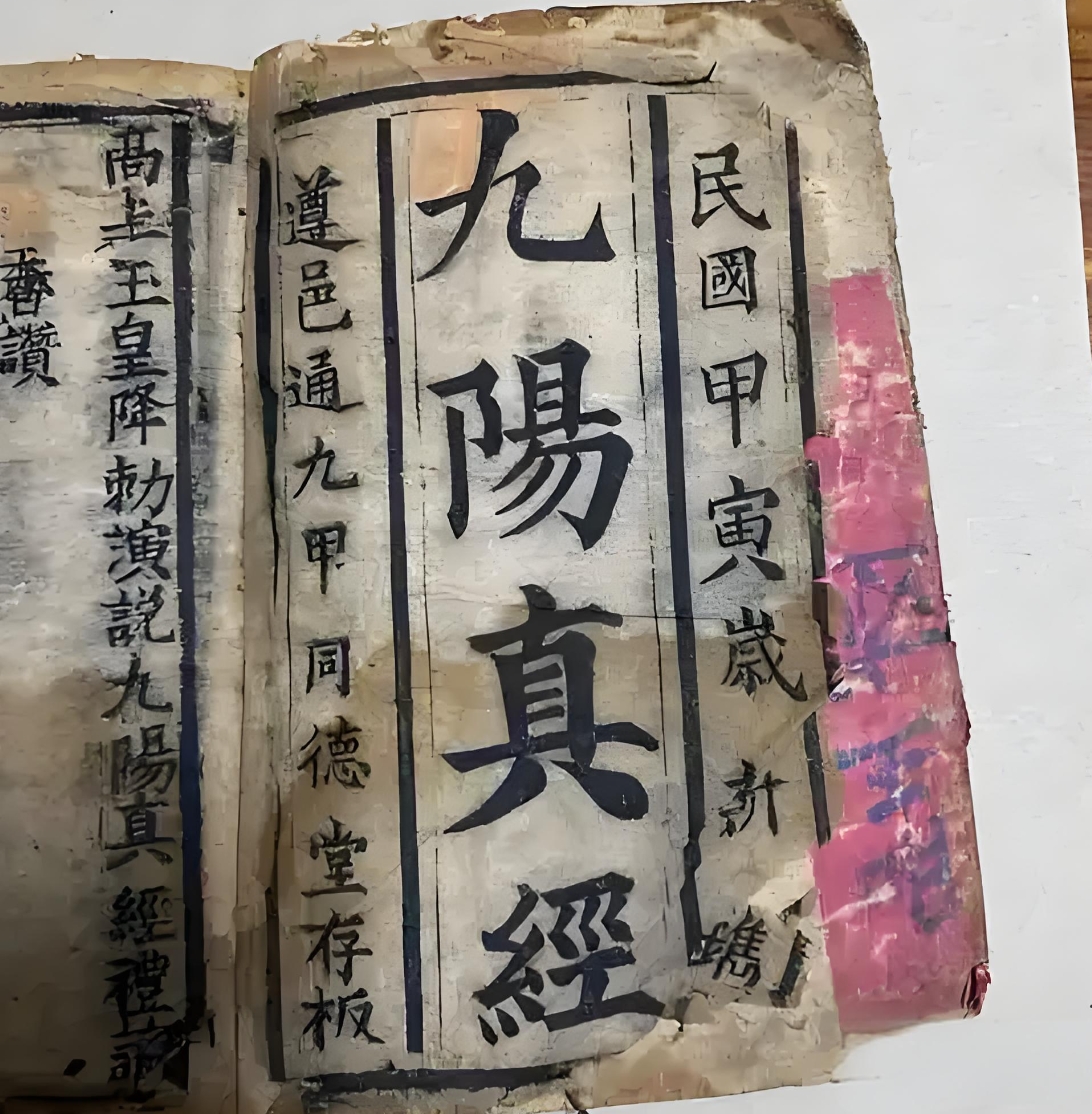 民國甲寅歲新鐫
九陽真經
遵邑通九甲同德堂存板
高上玉皇降勅演説九陽真經禮
香讚